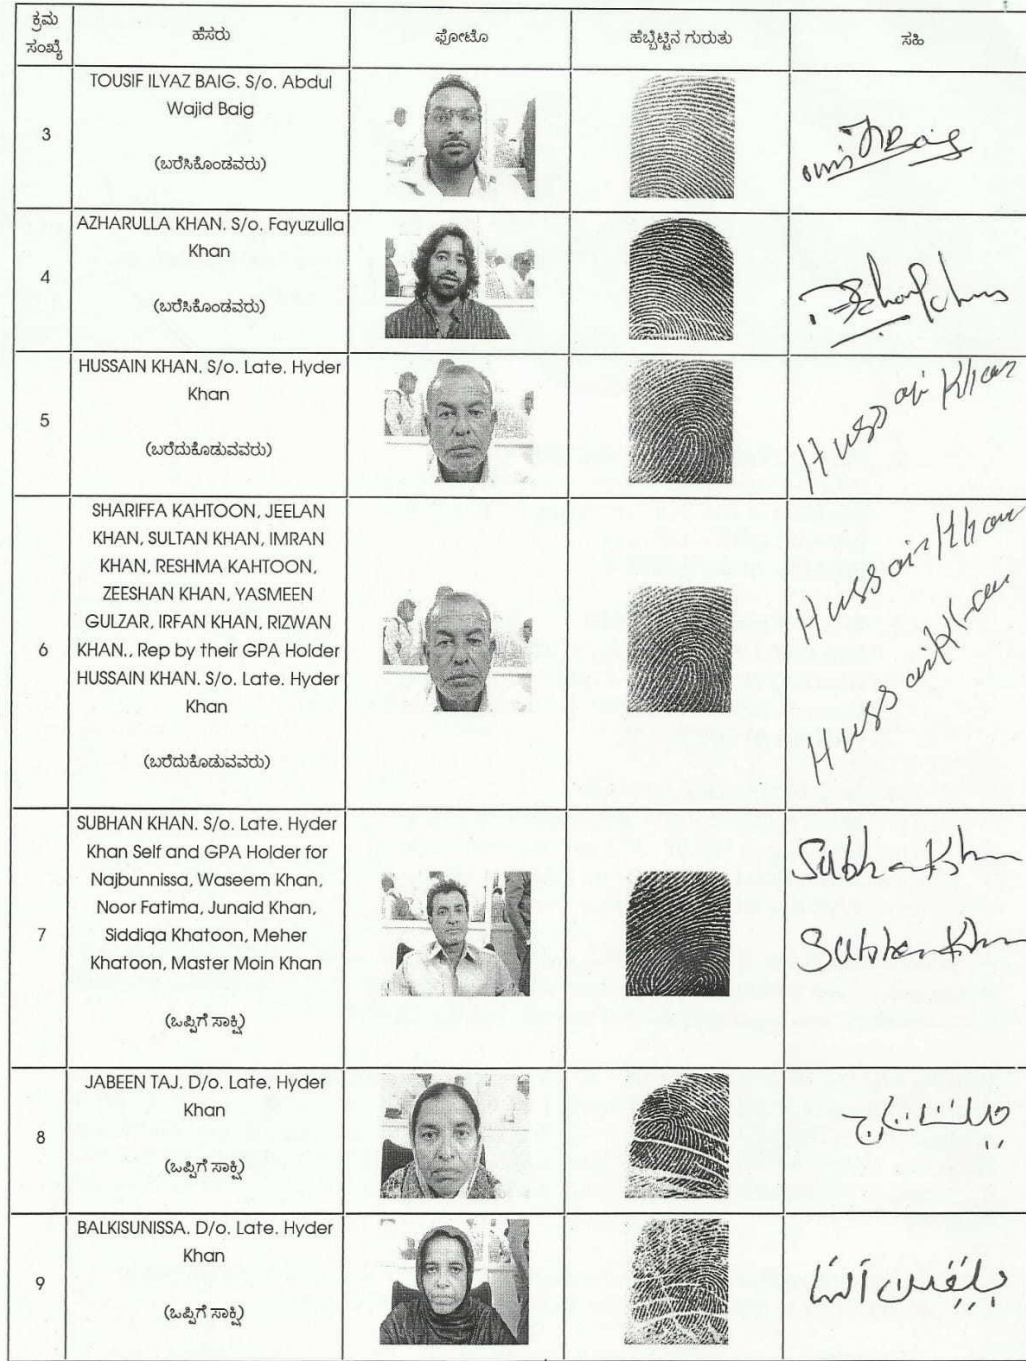 ಕ್ರಮ
ಸಂಖ್ಯೆ
ಹೆಸರು
ಫೋಟೊ
ಹೆಬ್ಬೆಟ್ಟಿನ ಗುರುತು
ಸಹಿ
3
TOUSIF ILYAZ BAIG. S/o. Abdul
Wajid Baig
(ಬರೆಸಿಕೊಂಡವರು)
4
AZHARULLA KHAN. S/o. Fayuzulla
Khan
(ಬರೆಸಿಕೊಂಡವರು)
5
HUSSAIN KHAN. S/o. Late. Hyder
Khan
(ಬರೆದುಕೊಡುವವರು)
Hussain Khan
6
SHARIFFA KAHTOON, JEELAN
KHAN, SULTAN KHAN, IMRAN
KHAN, RESHMA KAHTOON,
ZEESHAN KHAN, YASMEEN
GULZAR, IRFAN KHAN, RIZWAN
KHAN., Rep by their GPA Holder
HUSSAIN KHAN. S/o. Late. Hyder
Khan
(ಬರೆದುಕೊಡುವವರು)
Hussain Khan
Hussain Khan
7
SUBHAN KHAN. S/o. Late. Hyder
Khan Self and GPA Holder for
Najbunnissa, Waseem Khan,
Noor Fatima, Junaid Khan,
Siddiqa Khatoon, Meher
Khatoon, Master Moin Khan
(ಒಪ್ಪಿಗೆ ಸಾಕ್ಷಿ)
Subhan Khan
Subhan Khan
8
JABEEN TAJ. D/o. Late. Hyder
Khan
(ಒಪ್ಪಿಗೆ ಸಾಕ್ಷಿ)
9
BALKISUNISSA. D/o. Late. Hyder
Khan
(ಒಪ್ಪಿಗೆ ಸಾಕ್ಷಿ)